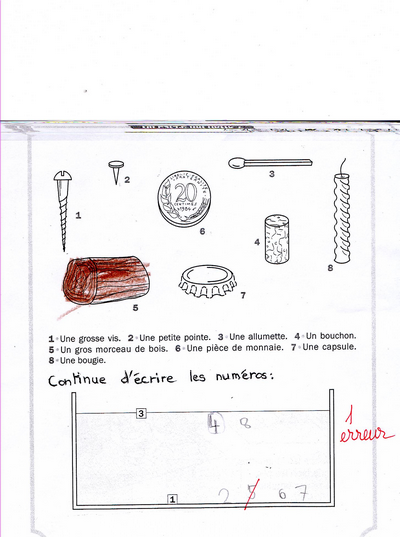 2
3
1
20
CENTIMES
1984
6
4
8
5
7
1 • Une grosse vis. 2 • Une petite pointe. 3 • Une allumette. 4 • Un bouchon.
5 • Un gros morceau de bois. 6 • Une pièce de monnaie. 7 • Une capsule.
8 • Une bougie.
Continue d'écrire les numéros:
3
4 8
1
erreur
1
2 5 6 7